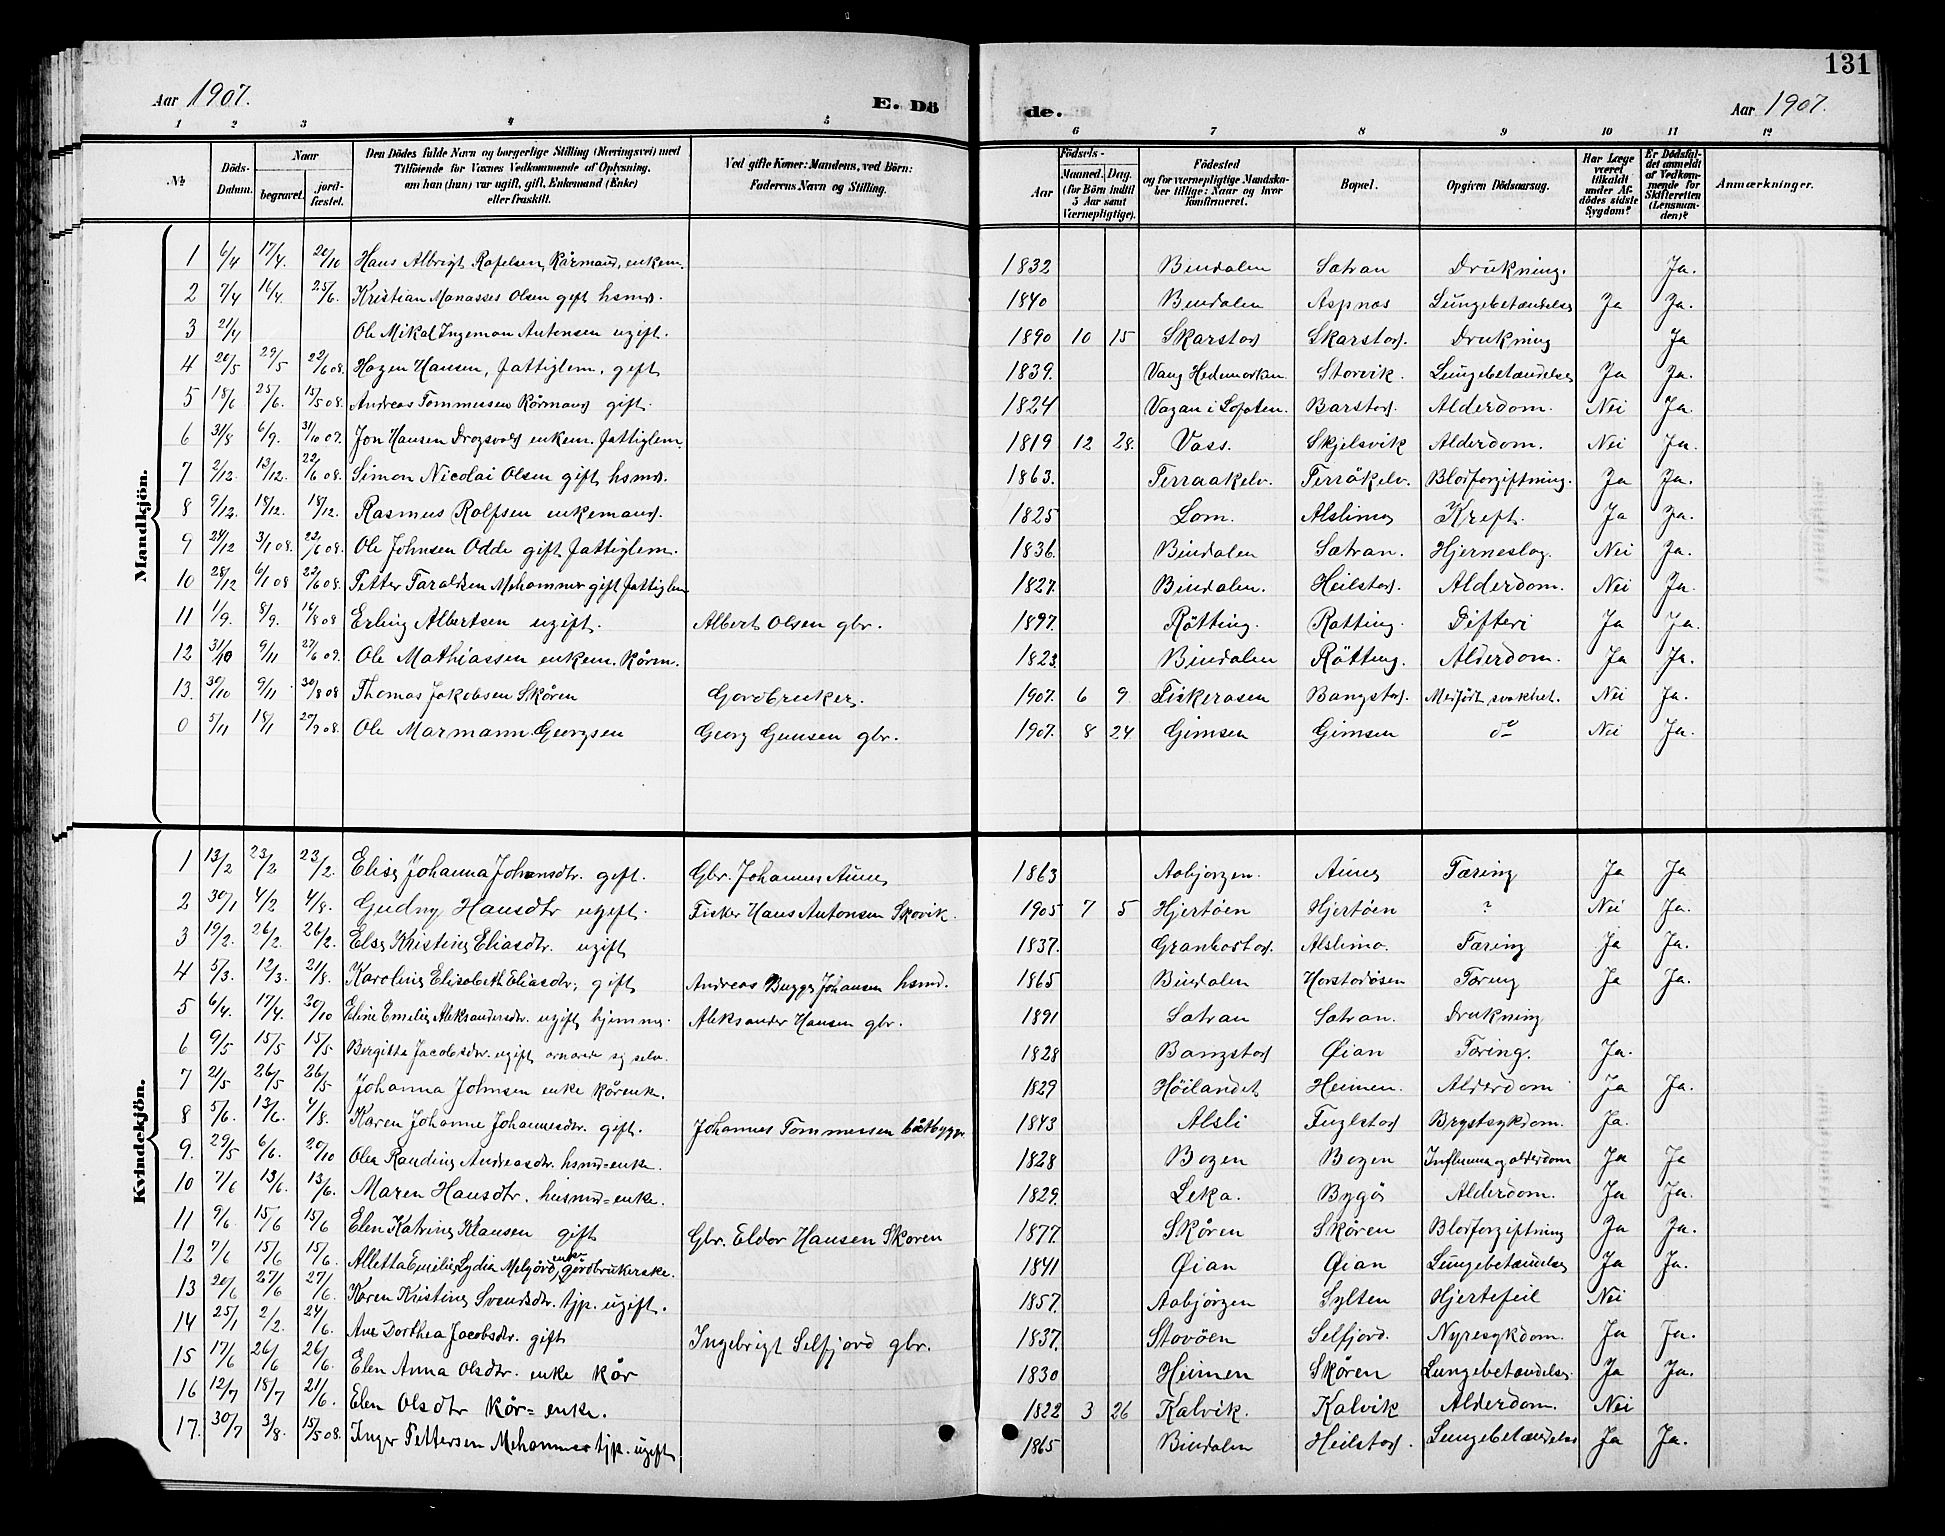 131
Aar 1907. E. Dö de. Aar 1907.
1 2 3 4 5 6 7 8 9 10 11 12
No. Döds-Datum. Naar begravet. jord-fæstet. Den Dödes fulde Navn og borgerlige Stilling (Næringsvei) med Tilföiende for Voxnes Vedkommende af Oplysning, om han (hun) var ugift, gift, Enkemand (Enke) eller fraskilt. Ved gifte Koner: Mandens, ved Börn: Faderens Navn og Stilling. Födsels- Aar Maaned. Dag. (for Börn indtil 5 Aar samt Værnepligtige). Födested og for værnepligtige Mandskaber tillige: Naar og hvor konfirmeret. Bopæl. Opgiven Dödsaarsag. Har Læge været tilkaldt under Afdödes sidste Sygdom? Er Dödsfaldet anmeldt af Vedkommende for Skifteretten (Lensmanden)? Anmærkninger.
Mandkjön.
1 6/4 17/4. 20/10 Hans Albrigt Rafelsen, Kårmand, enkem. 1832 Bindalen Satran Drukning. Ja.
2 7/4 16/4. 25/6. Kristian Manasses Olsen gift hsmd. 1840 Bindalen Aspnes Lungebetændelse Ja Ja.
3 21/4 Ole Mikal Ingeman Antonsen ugift. 1890 10 15 Skarstad Skarstad. Drukning Ja
4 20/5 29/5 22/6 08. Hagen Hansen, fattiglem, gift 1839. Vang Hedemarken Storvik. Lungebetændelse Ja Ja.
5 18/6 25/6. 15/5 08. Andreas Tommesen Kårmand gift. 1824 Vagan i Lofoten. Barstad. Alderdom. Nei Ja.
6 31/8 6/9. 31/10 07. Jon Hansen Drogsvold enkem. fattiglem 1819 12 28. Vass. Skjelsvik Alderdom. Nei Ja.
7 2/12. 13/12. 22/6 08. Simon Nicolai Olsen gift hsmd. 1863. Terraakelv. Terråkelv. Blodforgiftning. Ja Ja.
8 9/12. 18/12. 18/12. Rasmus Rolfsen enkemand. 1825 Lom. Alslimo Kreft. Ja Ja.
9 24/12 3/1 08. 22/6 08. Ole Johnsen Odde gift fattiglem. 1836. Bindalen Satran. Hjerneslag. Nei Ja.
10 28/12 6/1 08 22/6 08. Petter Taraldsen Mehammer gift fattiglem 1827. Bindalen. Heilstad. Alderdom. Nei Ja.
11 1/9. 8/9. 16/8 08 Erling Albertsen ugift. Albert Olsen gbr. 1897. Råtting. Ratting. Difteri Ja Ja.
12 31/10 9/11 27/6 09. Ole Mathiassen enkem. Kårm. 1823. Bindalen Råtting. Alderdom. Ja Ja.
13. 30/10 9/11 30/8 08 Thomas Jakobsen Skåren Gardbruker. 1907. 6 9 Fiskerosen Bangstad. Medfödt svakhet. Nei Ja.
0 5/11 18/1 27/7 08. Ole Marmann Georgsen Georg Gimsen gbr. 1907. 8 24 Gimsen Gimsen do Nei Ja.
Kvindekjön.
1 13/2 23/2 23/2. Elise Johanna Johansdtr. gift. Gbr. Johannes Aunes 1863 Aabjorgen. Aunes Tæring Ja Ja
2 30/1 4/2 4/8. Gudny Hansdtr ugift. Fisker Hans Antonsen Skovik. 1905 7 5 Hjertöen Hjertöen ? Nei Ja.
3 19/2. 26/2. 26/2. Else Kristine Eliasdtr. ugift 1837. Granbostad. Alslimo. Tæring Ja Ja.
4 5/3. 12/3. 21/8. Karoline Elisabeth Eliasdtr, gift Andreas Bugge Johansen hsmd. 1865 Bindalen Horstadåsen Tæring Ja Ja.
5 6/4. 17/4. 20/10 Eline Emelie Aleksandersdtr. ugift hjemme. Aleksander Hansen gbr. 1891 Satran Satran. Drukning
6 9/5 15/5 15/5. Bergitta Jacobsdtr. ugift ernærede sig selv. 1828 Bangstad Øian Tæring. Ja.
7 21/5 26/5 26/5 Johanna Johnsen enke kårenke. 1829 Höilandet Heimen. Alderdom Ja Ja.
8 5/6. 13/6. 4/8. Karen Johanne Johannesdtr. gift. Johannes Tommessen båtbygger 1843 Alsli Fuglstad Brystsykdom. Ja.
9. 29/5 6/6. 20/10 Olea Randine Andreasdtr. hsmd=enke. 1828 Bogen Bogen Influensa og alderdom Ja Ja
10 7/6 13/6. 13/6. Maren Hansdtr. husmd=enke. 1829. Leka. Bygå Alderdom. Ja Ja.
11 9/6. 15/6 15/6 Elen Katrine Klausen gift Gbr. Eldor Hansen Skoren 1877. Skåren Skåren Blodforgiftning Ja Ja.
12 7/6 15/6 15/6. Alletta Emelie Lydia Melgård, enke gårdbrukerske. 1841 Øian Øian Lungebetændelse Ja Ja.
13 20/6 27/6 27/6. Karen Kristine Svendsdtr. tjp. ugift. 1857. Aabjörgen Sylten Hjertefeil Nei
14 25/1 2/2. 24/6. Ane Dorthea Jacobsdtr. gift Ingebrigt Selfjord gbr. 1837. Stovöen Selfjord. Nyresykdom. Ja Ja.
15 17/6 26/6 26/6. Elen Anna Olsdtr. enke kår 1830 Heimen Skåren Lungebetændelse. Ja Ja.
16 12/7 18/7 21/6. Elen Olsdtr kår=enke. 1822 3 26 Kalvik. Kalvik Alderdom. Nei
17. 30/7 3/8. 15/5 08. Inger Pettersen Mehammer tjp. ugift 1865 Bindalen Heilstad. Lungebetændelse Ja Ja.